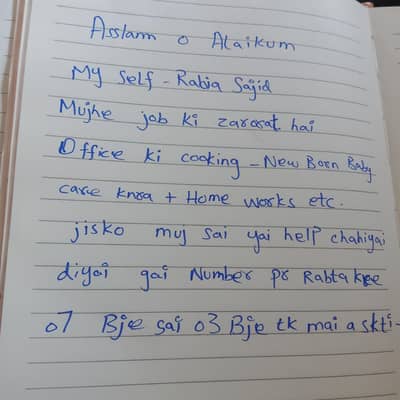 Asslam o Alaikum
My Self - Rabia Sajid
Mujhe job ki zarosat hai
Office ki cooking - New Born Baby
care knra + Home works etc.
jisko muj sai yai help chahiyai
diyai gai Number pr Rabta kre
07 Bje sai 03 Bje tk mai a skti-